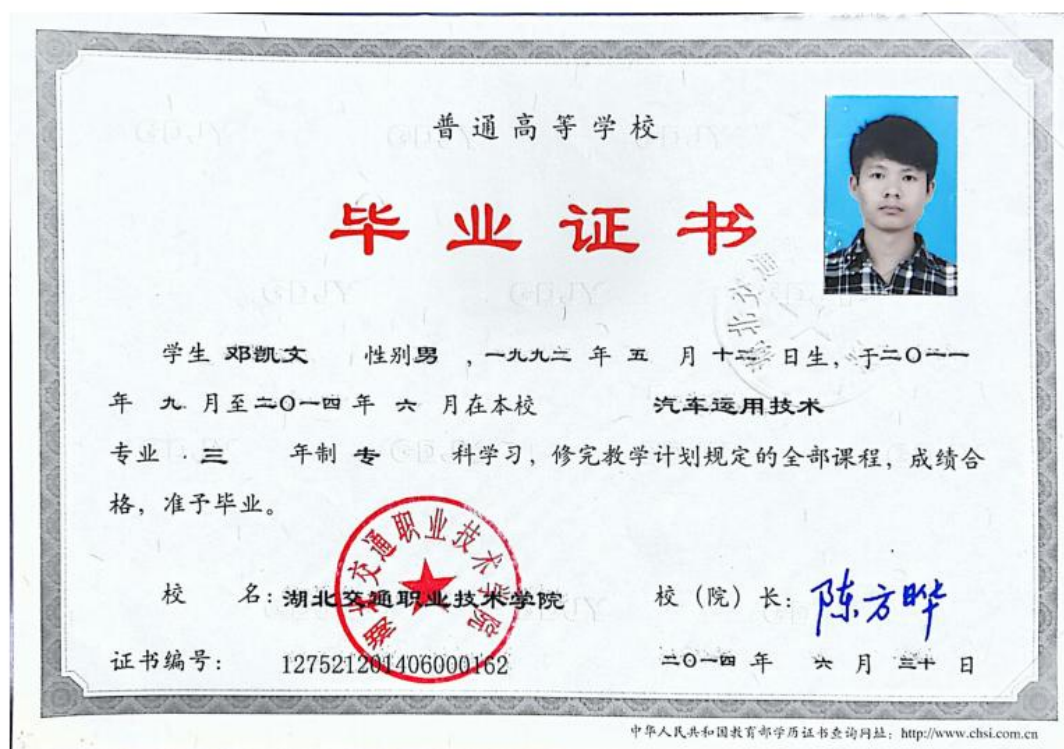 普通高等学校
毕业证书
学生 邓凯文 性别男，一九九二 年 五 月 十二 日生，于二〇一一
年 九 月至二〇一四年 六 月在本校 汽车运用技术
专业 三 年制 专 科学习，修完教学计划规定的全部课程，成绩合
格，准予毕业。
交通职业技术学院
校 名：湖北交通职业技术学院 校（院）长：陈方晔
证书编号： 127521201406000162 二〇一四 年 六 月 三十 日
中华人民共和国教育部学历证书查询网址：http://www.chsi.com.cn